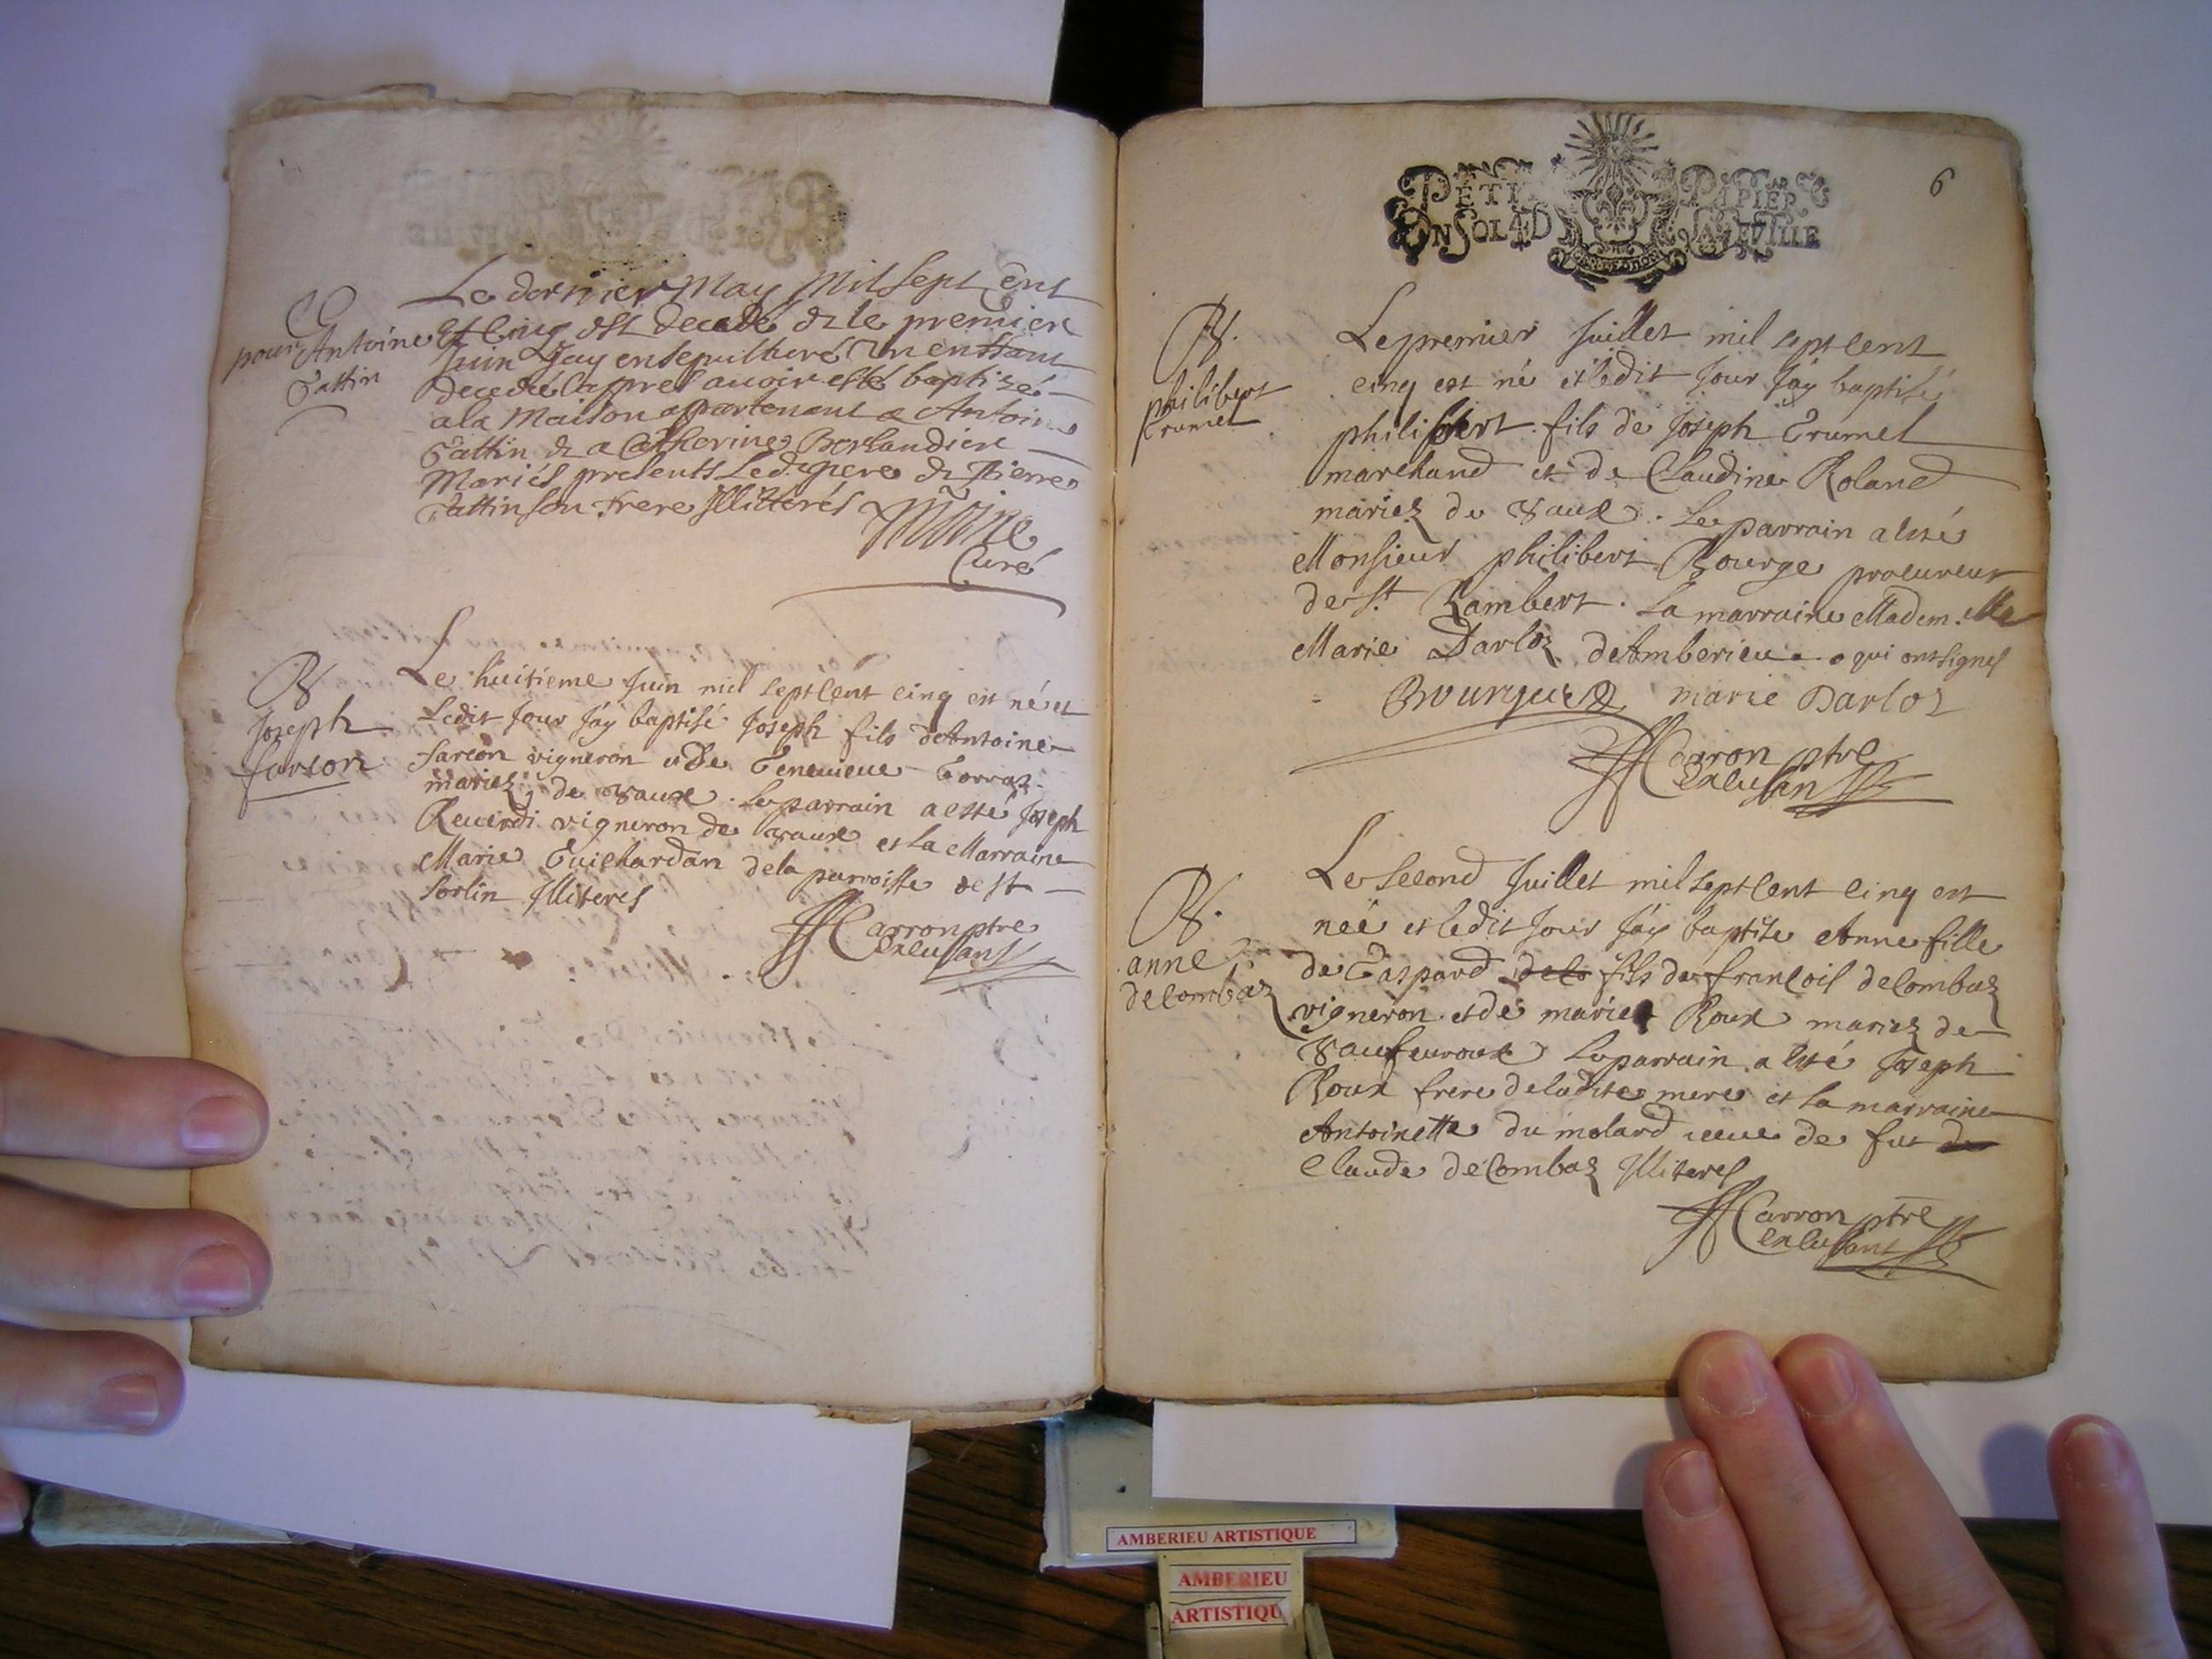 Le dernier May Mil sept Cent
pour Antoine
Gattin
Et Cinq est decedé & le premier
Juin Jay ensepulturé Un enffant
decedé appres auoir esté baptizé
a la Maison appartenant a Antoine
Gattin & a Catherine Berlandier
Mariés presents Led. pere & Pierre
Gattin son frere Illitterés
Moine
Curé
B
Joseph
farcon
Le huitieme Juin mil sept Cent cinq est né et
Ledit Jour Jáy baptisé Joseph fils d'Antoine
farcon vigneron et de Geneuieue Gorraz
mariez de vaux. Le parrain a esté Joseph
Reuerdi vigneron de vaux et la Marraine
Marie Guichardan de la parroisse de St
Sorlin Illiteres
Carron ptre
Deluisans
6
PETIT PAPIER
UN SOL 4 D LA FEUILLE
B.
philibert
Grumel
Le premier Juillet mil sept cent
cinq est né et ledit Jour Jáy baptisé
philibert fils de Joseph Grumel
marchand et de Claudine Roland
mariez de vaux. Le parrain a esté
Monsieur philibert Bourge procureur
de St. Rambert. La marraine Madem.elle
Marie Darloz d'Amberieu qui ont signes
marie Darloz
Carron ptre
B.
anne
decombaz
Le second Juillet mil sept Cent Cinq est
née et ledit Jour Jáy baptise Anne fille
de Gaspard deco fils de francois decombaz
vigneron et de marie Roux mariez de
vaufeuroux Le parrain a esté Joseph
Roux frere de ladite mere et la marraine
Antoinette du molard veuue de fut de
Claude decombaz Illiteres
Carron ptre
AMBERIEU ARTISTIQUE
AMBERIEU
ARTISTIQU